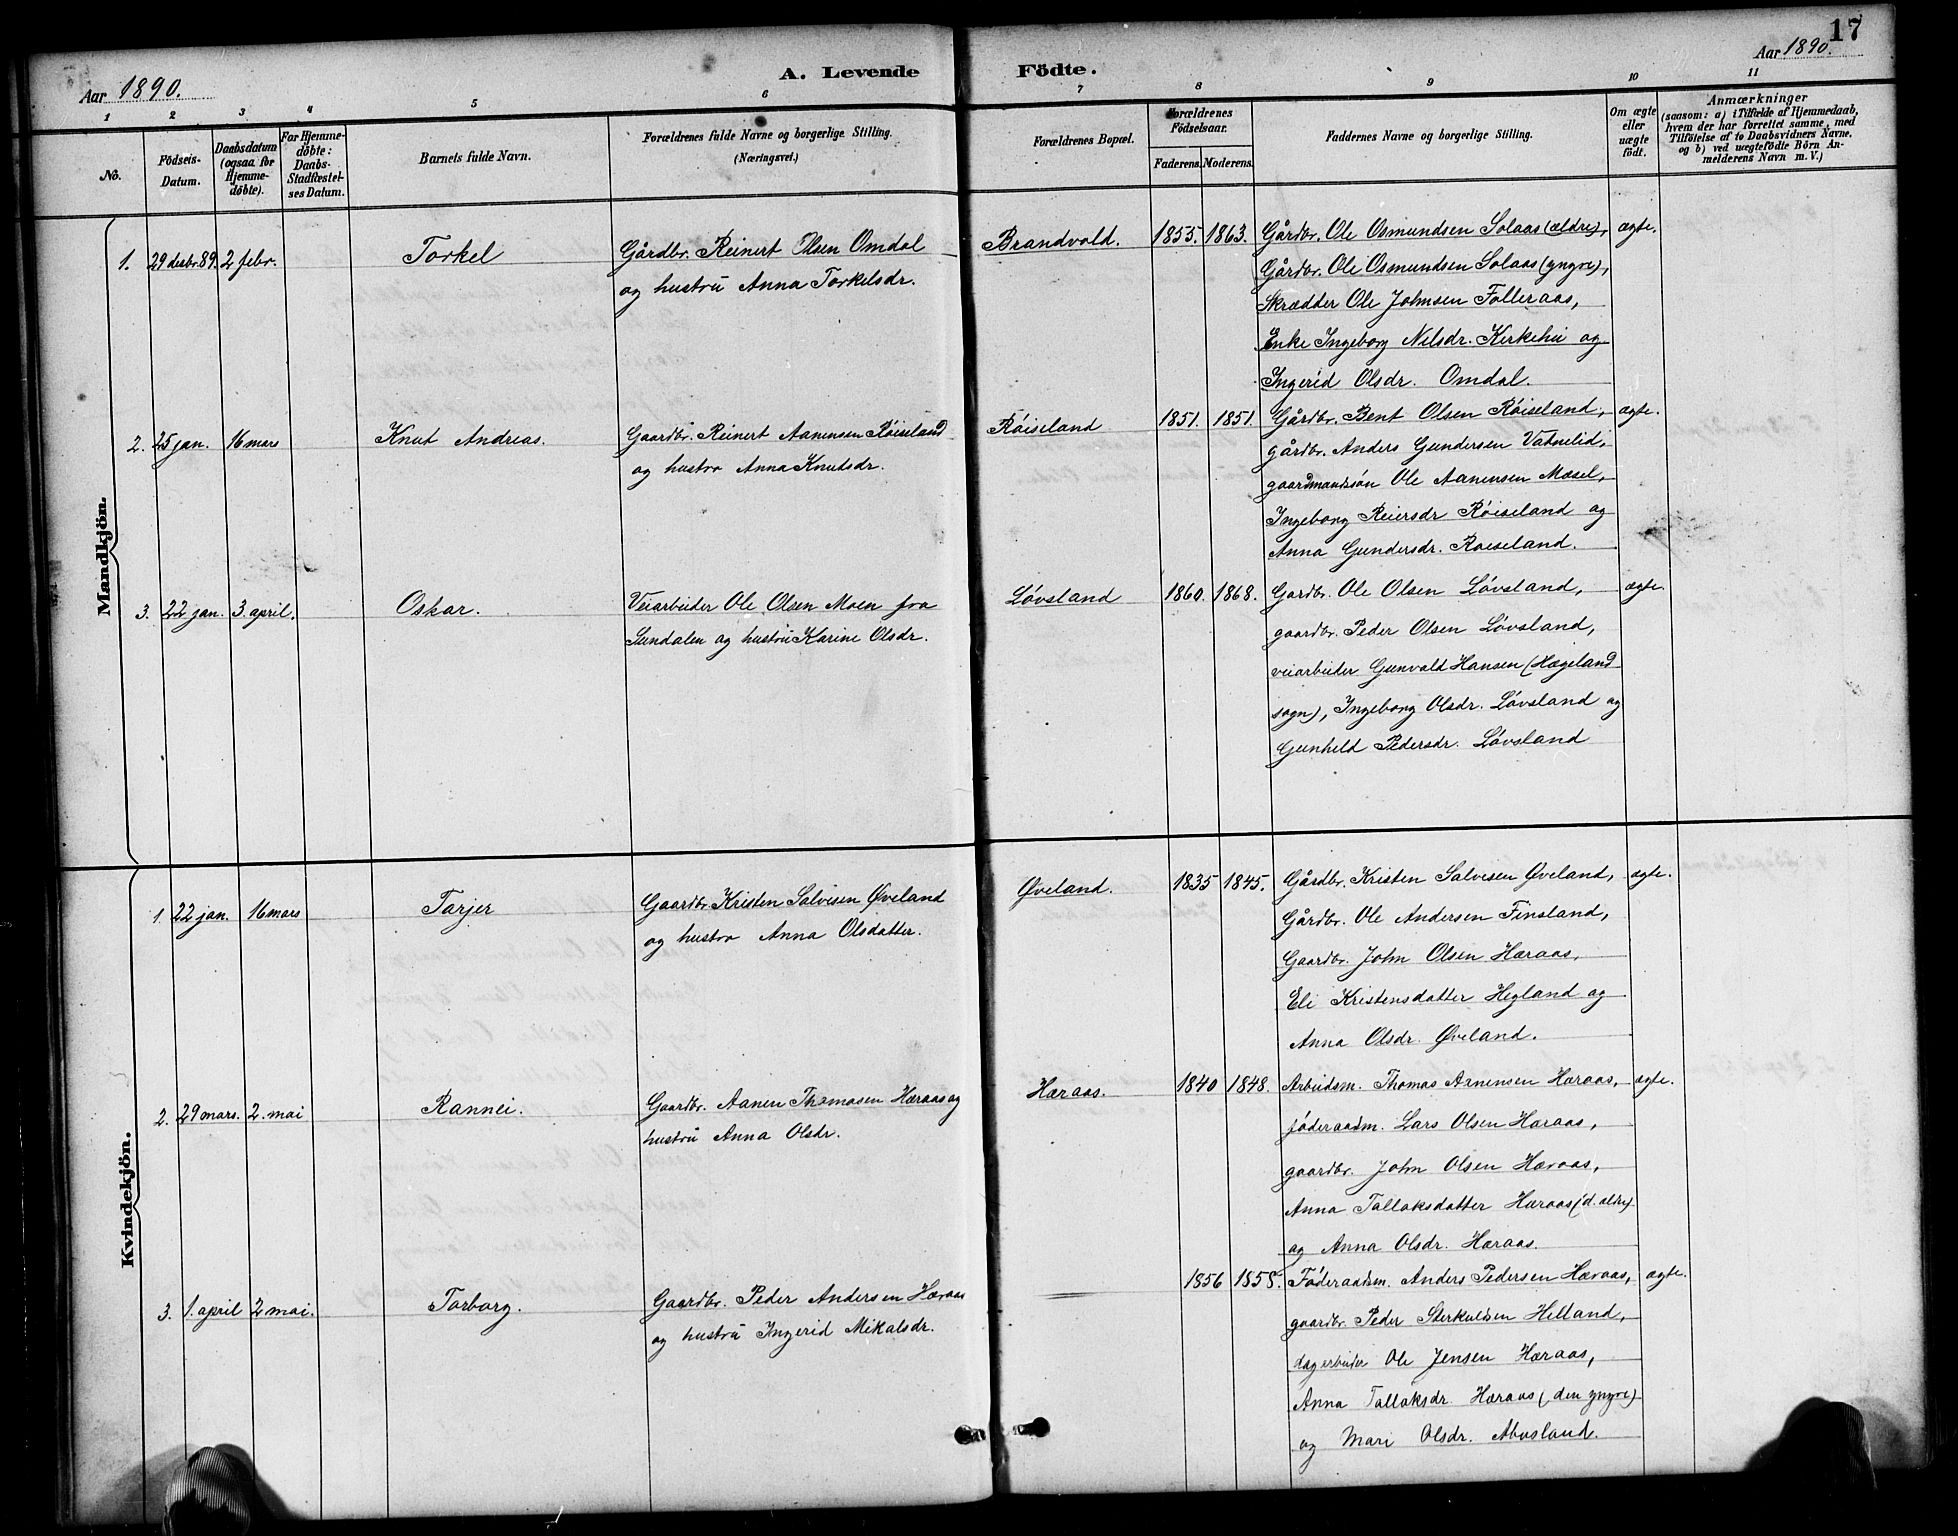 17
Aar 1890.
A. Levende Födte.
Aar 1890.
1 2 3 4 5 6 7 8 9 10 11
No.
Födsels-Datum.
Daabsdatum (ogsaa for Hjemme-döbte).
For Hjemme-döbte: Daabs-Stadfæstel-ses Datum.
Barnets fulde Navn.
Forældrenes fulde Navne og borgerlige Stilling.
(Næringsvei.)
Forældrenes Bopæl.
Forældrenes Födselsaar.
Faderens. Moderens.
Faddernes Navne og borgerlige Stilling.
Om ægte eller uægte födt.
Anmærkninger
(saasom: a) i Tilfælde af Hjemmedaab, hvem der har forrettet samme, med Tilföielse af to Daabsvidners Navne, og b) ved uægtefödte Börn An-melderens Navn m. V.)
Mandkjön.
1. 29 desbr. 89. 2 febr. Torkel
Gårdbr. Reinert Olsen Omdal
og hustru Anna Torkelsdr.
Brandvold. 1855. 1863.
Gårdbr. Ole Osmundsen Solaas (ældre), ægte.
Gårdbr. Ole Osmundsen Solaas (yngre),
Skrædder Ole Johnsen Folleraas,
Enke Ingeborg Nilsdr. Kirkehei og
Ingerid Olsdr. Omdal.
2. 25 jan. 16 mars Knut Andreas.
Gaardbr. Reinert Aanensen Røiseland
og hustru Anna Knutsdr.
Røiseland 1851. 1851.
Gårdbr. Bent Olsen Røiseland, ægte.
gårdbr. Anders Gundersen Vatnelid,
gaardmandssøn Ole Aanensen Mosel,
Ingeborg Reiersdr Røiseland og
Anna Gundersdr. Røiseland.
3. 22 jan. 3. april. Oskar.
Veiarbeider Ole Olsen Moen fra
Sundalen og hustru Karine Olsdr.
Løvsland 1860. 1868.
Gardbr. Ole Olsen Løvsland, ægte.
gaardbr. Peder Olsen Løvsland,
veiarbeider Gunvald Hansen (Hægeland
sogn), Ingeborg Olsdr. Løvsland og
Gunhild Pedersdr. Løvsland
Kvindekjön.
1. 22 jan. 16 mars Tarjer
Gaardbr. Kristen Salvesen Øveland
og hustru Anna Olsdatter.
Øveland. 1835 1845.
Gårdbr. Kristen Salvesen Øveland, ægte.
Gårdbr. Ole Andersen Finsland,
Gaardbr. John Olsen Hæraas,
Eli Kristensdatter Hegland og
Anna Olsdr. Øveland.
2. 29 mars. 2. mai Rannei.
Gaardbr. Aanen Thomasen Hæraas og
hustru Anna Olsdr.
Hæraas. 1840 1848.
Arbeidsm. Thomas Aanensen Hæraas, ægte.
føderaadsm. Lars Olsen Hæraas,
gaardbr. John Olsen Hæraas,
Anna Tallaksdatter Hæraas (d. ældre)
og Anna Olsdr. Hæraas.
3. 1. april 2 mai. Torborg.
Gaardbr. Peder Andersen Hæraas
og hustru Ingerid Mikalsdr.
— 1856 1858.
Føderaadsm. Anders Pedersen Hæraas, ægte.
gaardbr. Peder Sterkelsen Helland,
dagarbeider Ole Jensen Hæraas,
Anna Tallaksdr. Hæraas (den yngre)
og Mari Olsdr. Abusland.